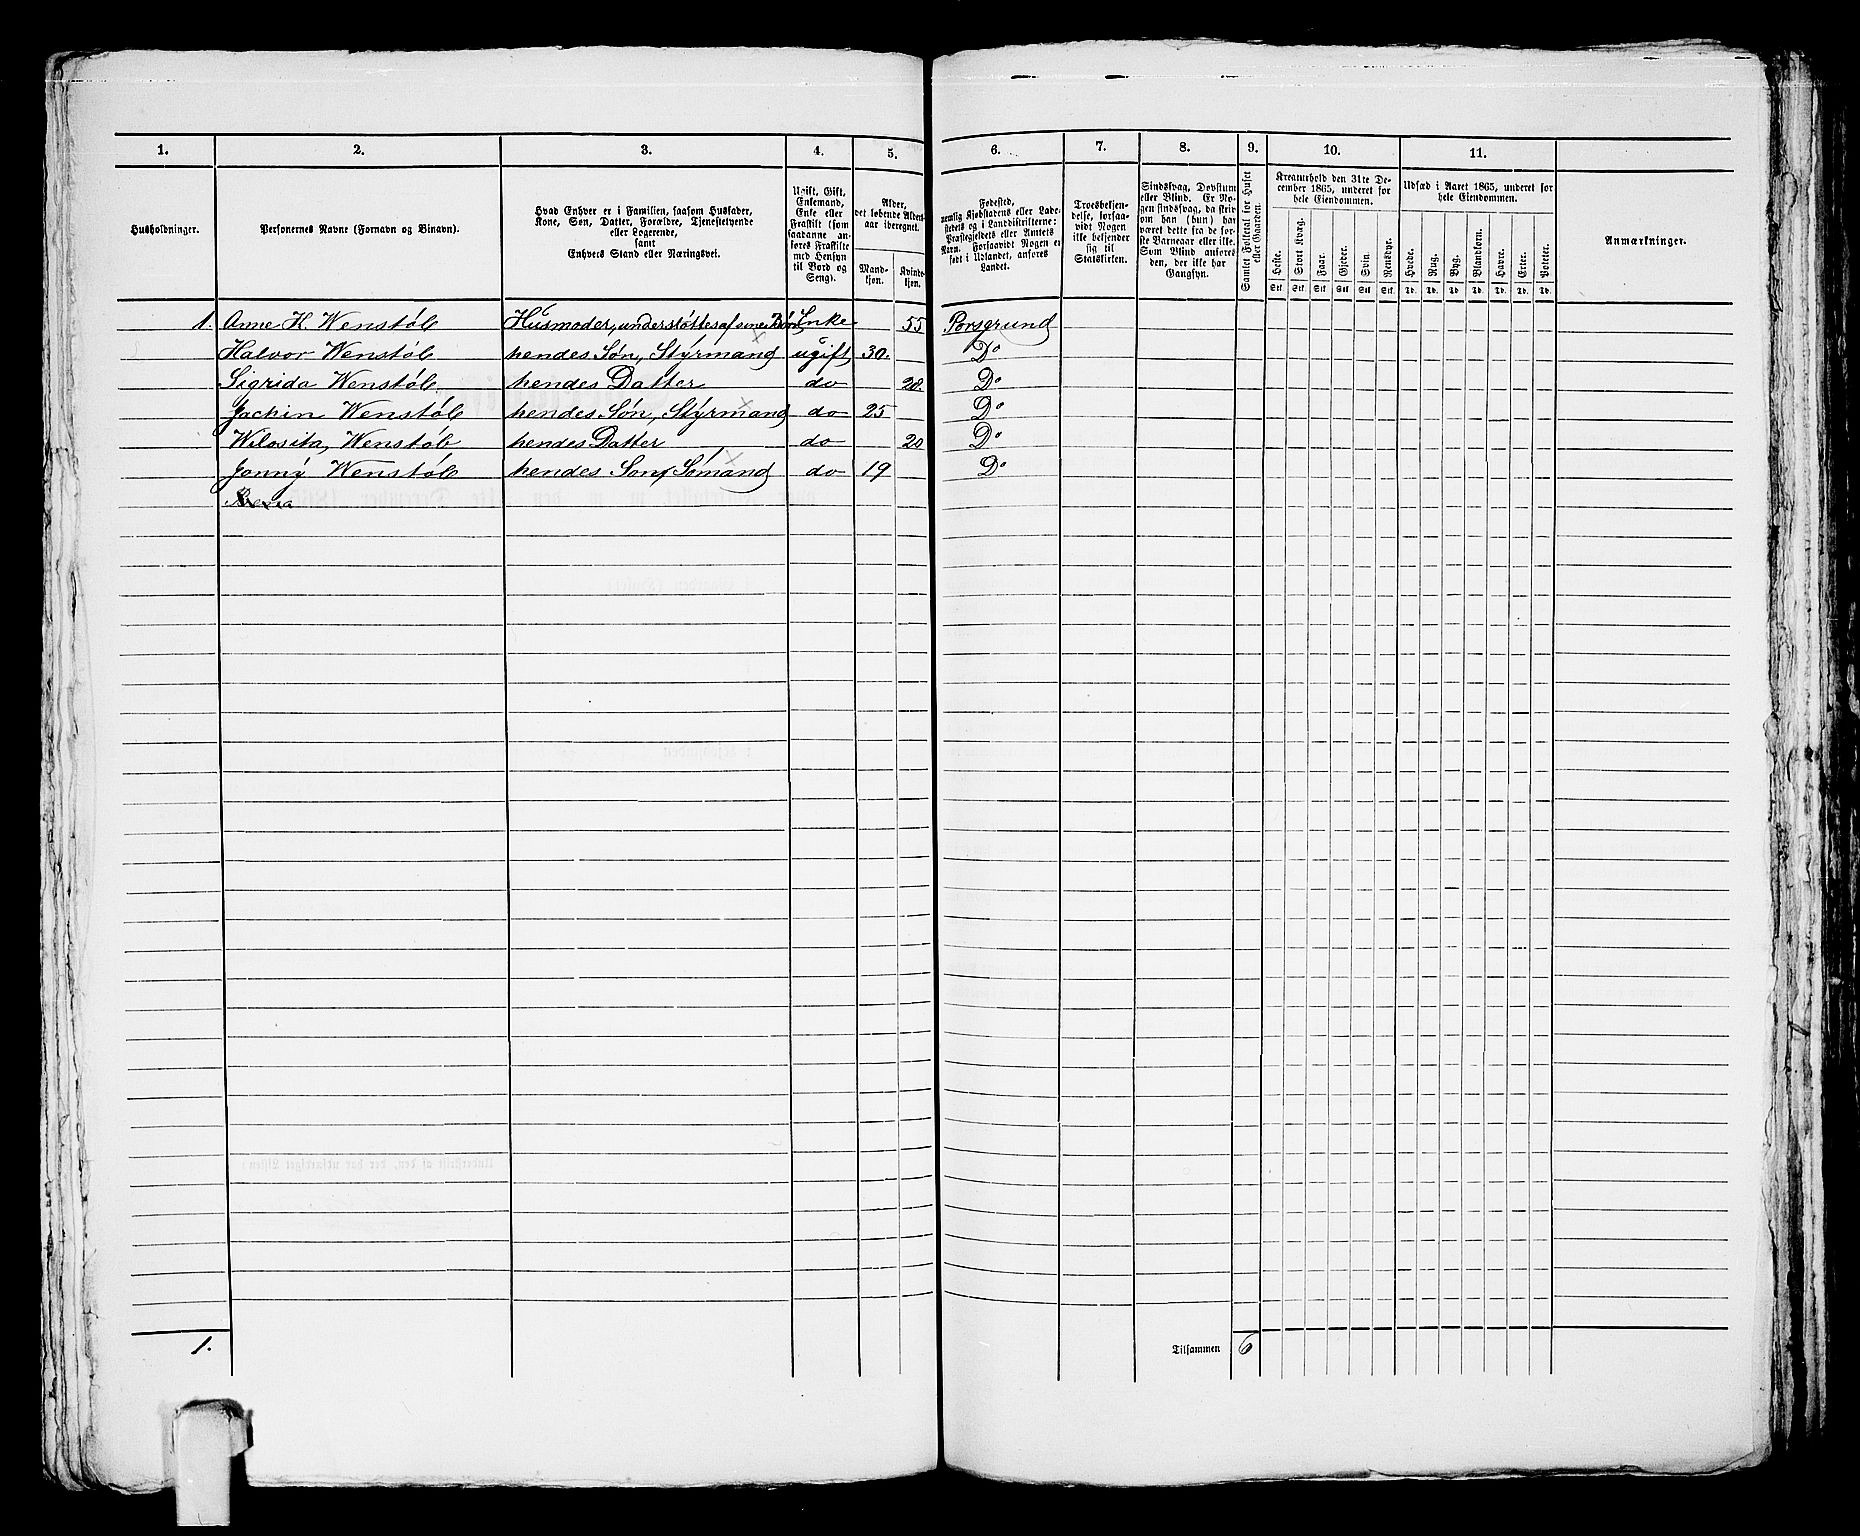 1. 2. 3. 4. 5. 6. 7. 8. 9. 10. 11.
Husholdninger.
Personernes Navne (Fornavn og Binavn).
Hvad Enhver er i Familien, saasom Husfader,
Kone, Søn, Datter, Forældre, Tjenestetyende
eller Logerende,
samt
Enhvers Stand eller Næringsvei.
Ugift, Gift,
Enkemand,
Enke eller
Fraskilt (som
saadanne an-
føres Fraskilte
med Hensyn
til Bord og
Seng).
Alder,
det løbende Alders-
aar iberegnet.
Mand-
kjøn.
Kvinde-
kjøn.
Fødested,
nemlig Kjøbstadens eller Lade-
stedets og i Landdistrikterne:
Præstegjeldets eller Amtets
Navn. Forsaavidt Nogen er
født i Udlandet, anføres
Landet.
Troesbekjen-
delse, forsaa-
vidt Nogen
ikke bekjender
sig til
Statskirken.
Sindssvag, Døvstum
eller Blind. Er No-
gen sindssvag, da skriv
om han (hun) har
været dette fra de før-
ste Barneaar eller ikke.
Som Blind anføres
den, der ikke har
Gangsyn.
Samlet Folketal for Huset
eller Gaarden.
Kreaturhold den 31te De-
cember 1865, underet for
hele Eiendommen.
Heste. Stort Kvæg. Faar. Gjeder. Svin. Rensdyr.
Stk. Stk. Stk. Stk. Stk. Stk.
Udsæd i Aaret 1865, underet for
hele Eiendommen.
Hvede. Rug. Byg. Blandkorn. Havre. Erter. Poteter.
Td. Td. Td. Td. Td. Td. Td.
Anmærkninger.
1. Anne K. Wenstøb Husmoder, understøttes af sine Børn Enke 55 Porsgrund
Halvor Wenstøb hendes Søn, Styrmand ugift 30. Do
Sigrida Wenstøb hendes Datter do 28. Do
Jachin Wenstøb hendes Søn, Styrmand do 25 Do
Wilosita, Wenstøb hendes Datter do 20 Do
Jonny Wenstøb hendes Søn, Sømand do 19 Do
1.
Tilsammen 6